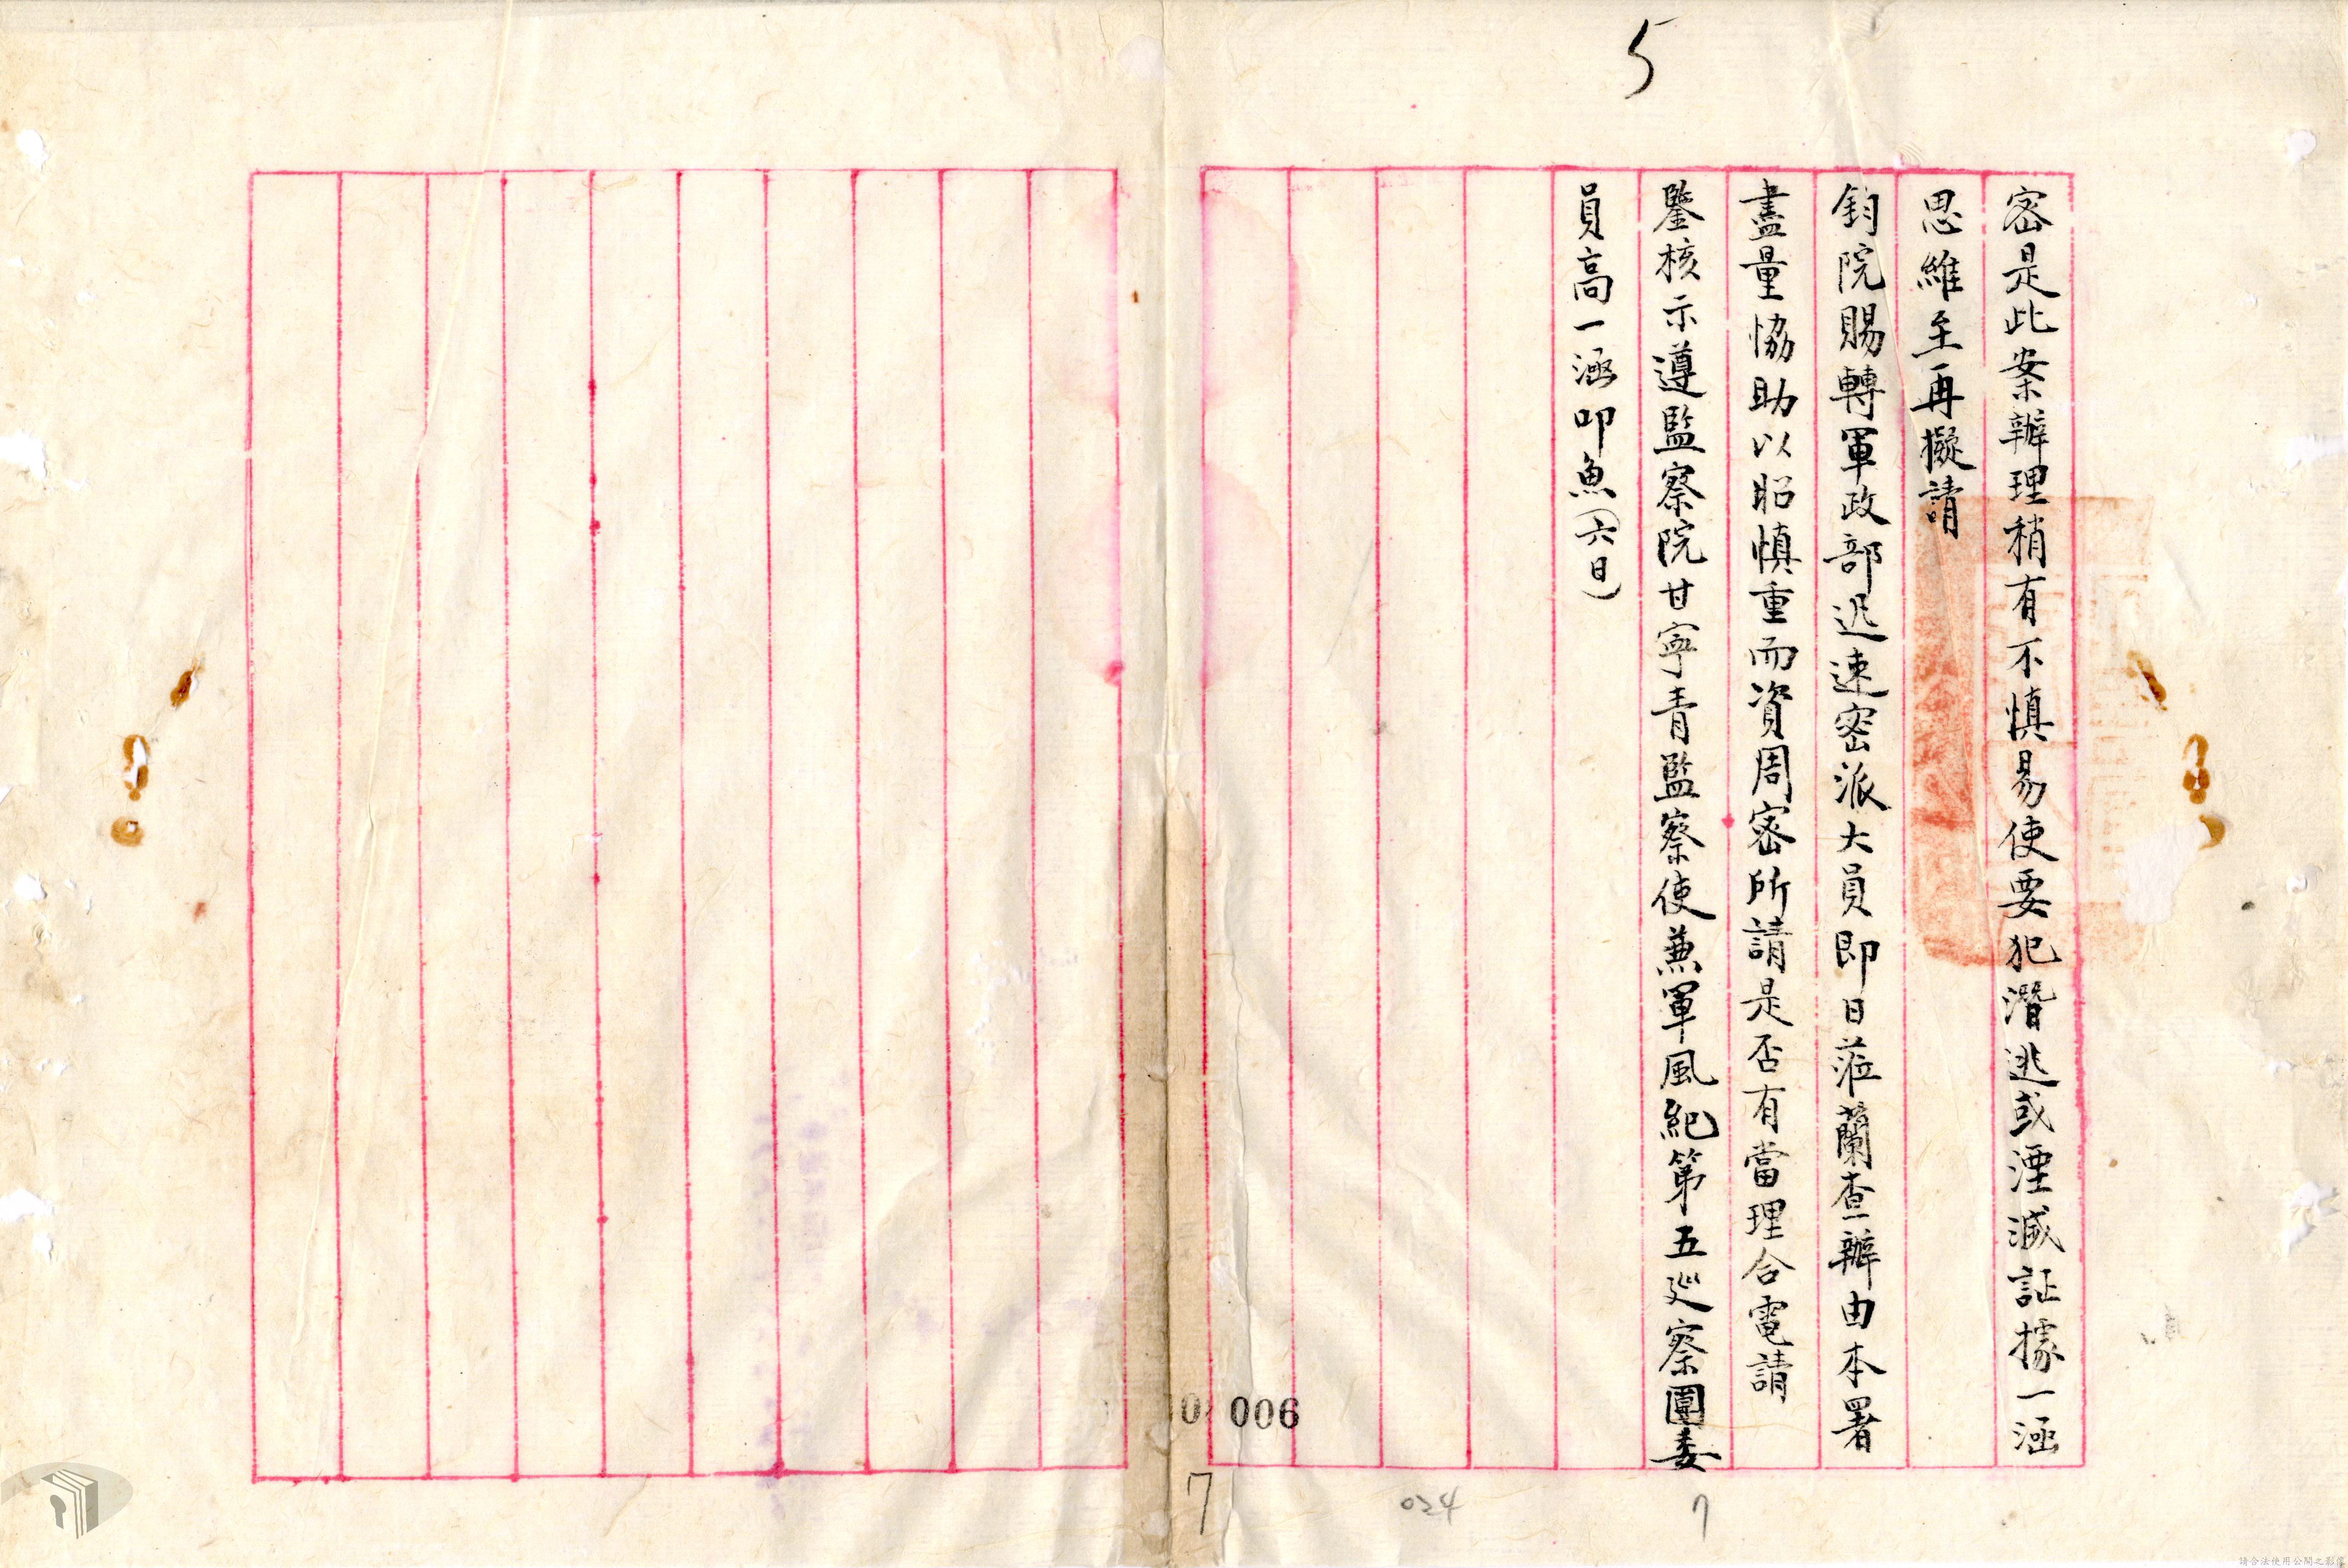 5
密是此案辦理稍有不慎易使要犯潛逃或湮滅証據一涵
思維至再擬請
鈞院賜轉軍政部迅速密派大員即日蒞蘭查辦由本署
盡量協助以昭慎重而資周密所請是否有當理合電請
鑒核示遵監察院甘寧青監察使兼軍風紀第五巡察團委
員高一涵叩魚(六日)
006
7
024
7
請合法使用公開之影像